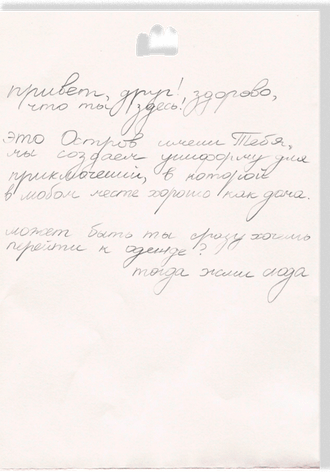 привет, друг! здорово,
что ты здесь!
это Остров имени Тебя,
мы создаем униформу для
приключений, в которой
в любом месте хорошо как дома.
может быть ты сразу хочешь
перейти к одежде?
тогда жми сюда